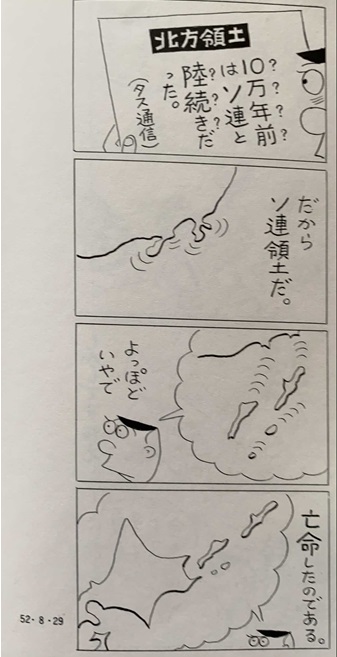 北方領土
????
10万年前
はソ連と
???
陸続きだ
った。
(タス通信)
だから
ソ連領土だ。
よっぽど
いやで
亡命したのである。
52・8・29